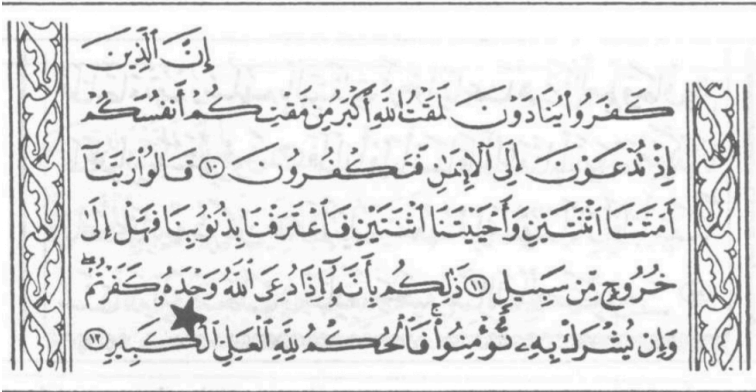 إِنَّ ٱلَّذِينَ
كَفَرُوا۟ يُنَادَوْنَ لَمَقْتُ ٱللَّهِ أَكْبَرُ مِن مَّقْتِكُمْ أَنفُسَكُمْ
إِذْ تُدْعَوْنَ إِلَى ٱلْإِيمَٰنِ فَتَكْفُرُونَ ١٠ قَالُوا۟ رَبَّنَآ
أَمَتَّنَا ٱثْنَتَيْنِ وَأَحْيَيْتَنَا ٱثْنَتَيْنِ فَٱعْتَرَفْنَا بِذُنُوبِنَا فَهَلْ إِلَىٰ
خُرُوجٍ مِّن سَبِيلٍ ١١ ذَٰلِكُم بِأَنَّهُۥٓ إِذَا دُعِىَ ٱللَّهُ وَحْدَهُۥ كَفَرْتُمْ ۖ
وَإِن يُشْرَكْ بِهِۦ تُؤْمِنُوا۟ ۚ فَٱلْحُكْمُ لِلَّهِ ٱلْعَلِىِّ ٱلْكَبِيرِ ١٢